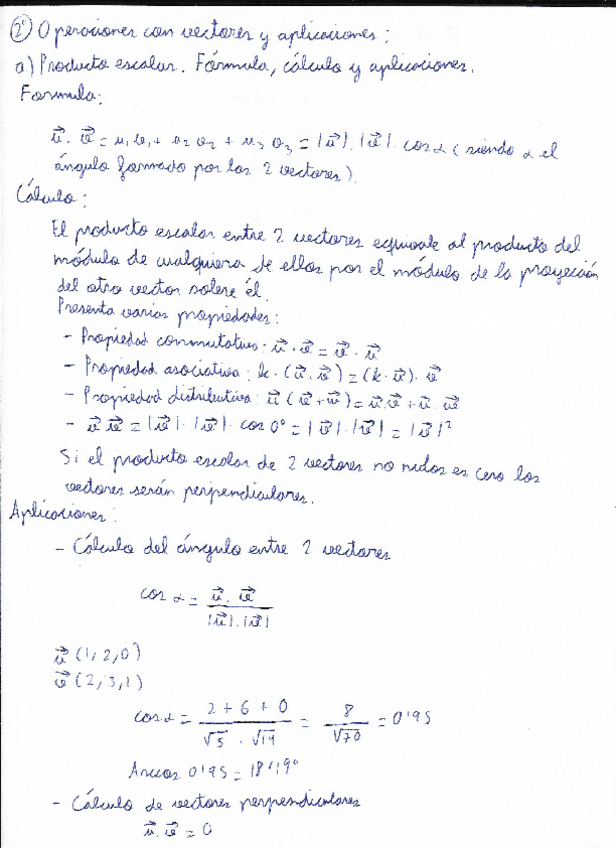 2º Operaciones con vectores y aplicaciones:
a) Producto escalar. Fórmula, cálculo y aplicaciones.
Formula:
u⃗ . v⃗ = u₁v₁ + u₂v₂ + u₃v₃ = |u⃗|. |v⃗|. cos α (siendo α el
ángulo formado por los 2 vectores).
Cálculo:
El producto escalar entre 2 vectores equivale al producto del
módulo de cualquiera de ellos por el módulo de la proyección
del otro vector sobre él.
Presenta varias propiedades:
- Propiedad conmutativa: u⃗ . v⃗ = v⃗ . u⃗
- Propiedad asociativa: k. (u⃗ . v⃗) = (k. u⃗). v⃗
- Propiedad distributiva: u⃗ (v⃗ + w⃗) = u⃗. v⃗ + u⃗. w⃗
- v⃗ v⃗ = |v⃗| . |v⃗|. cos 0° = |v⃗|. |v⃗| = |v⃗|²
Si el producto escalar de 2 vectores no nulos es cero los
vectores serán perpendiculares.
Aplicaciones:
- Cálculo del ángulo entre 2 vectores
cos α = u⃗ . v⃗ / |u⃗| . |v⃗|
u⃗ (1, 2, 0)
v⃗ (2, 3, 1)
cos α = 2 + 6 + 0 / √5 . √14 = 8 / √70 = 0'95
Arccos 0'95 = 18'19°
- Cálculo de vectores perpendiculares
u⃗ . v⃗ = 0